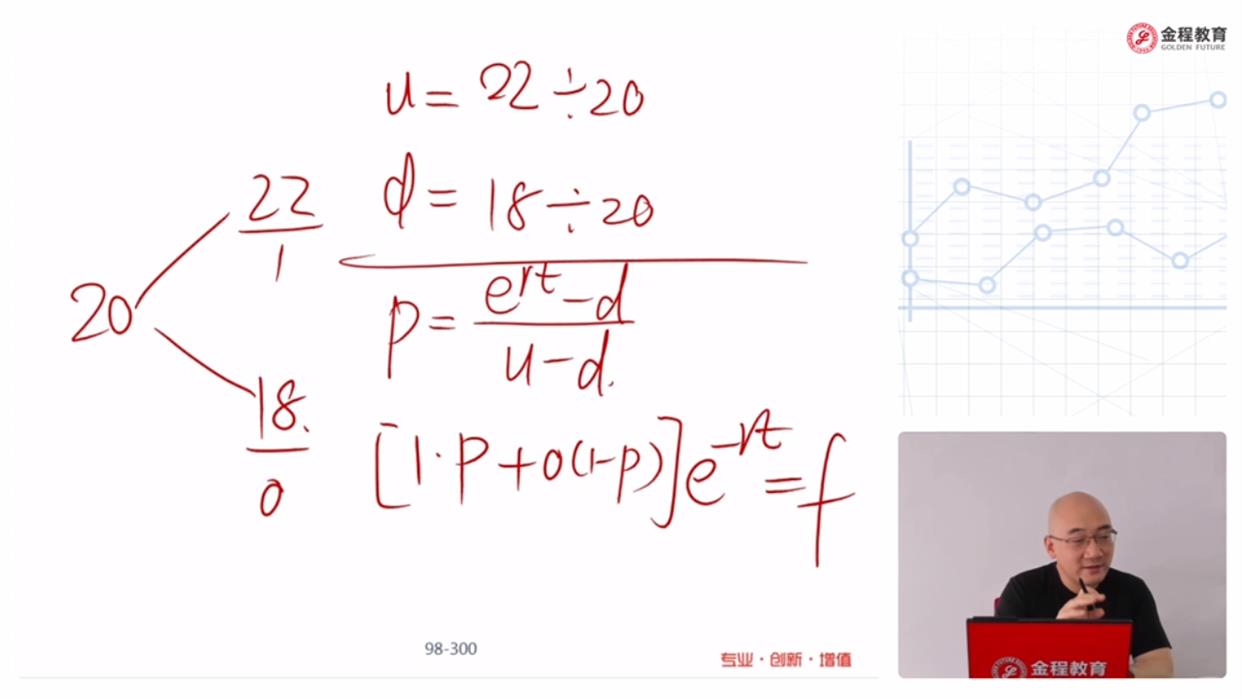 金程教育
GOLDEN FUTURE
u = 22 ÷ 20
d = 18 ÷ 20
20
22
1
18.
0
p = (e^rt - d) / (u - d.)
[1·p + 0(1-p)]e^-rt = f
98-300
专业·创新·增值
金程教育